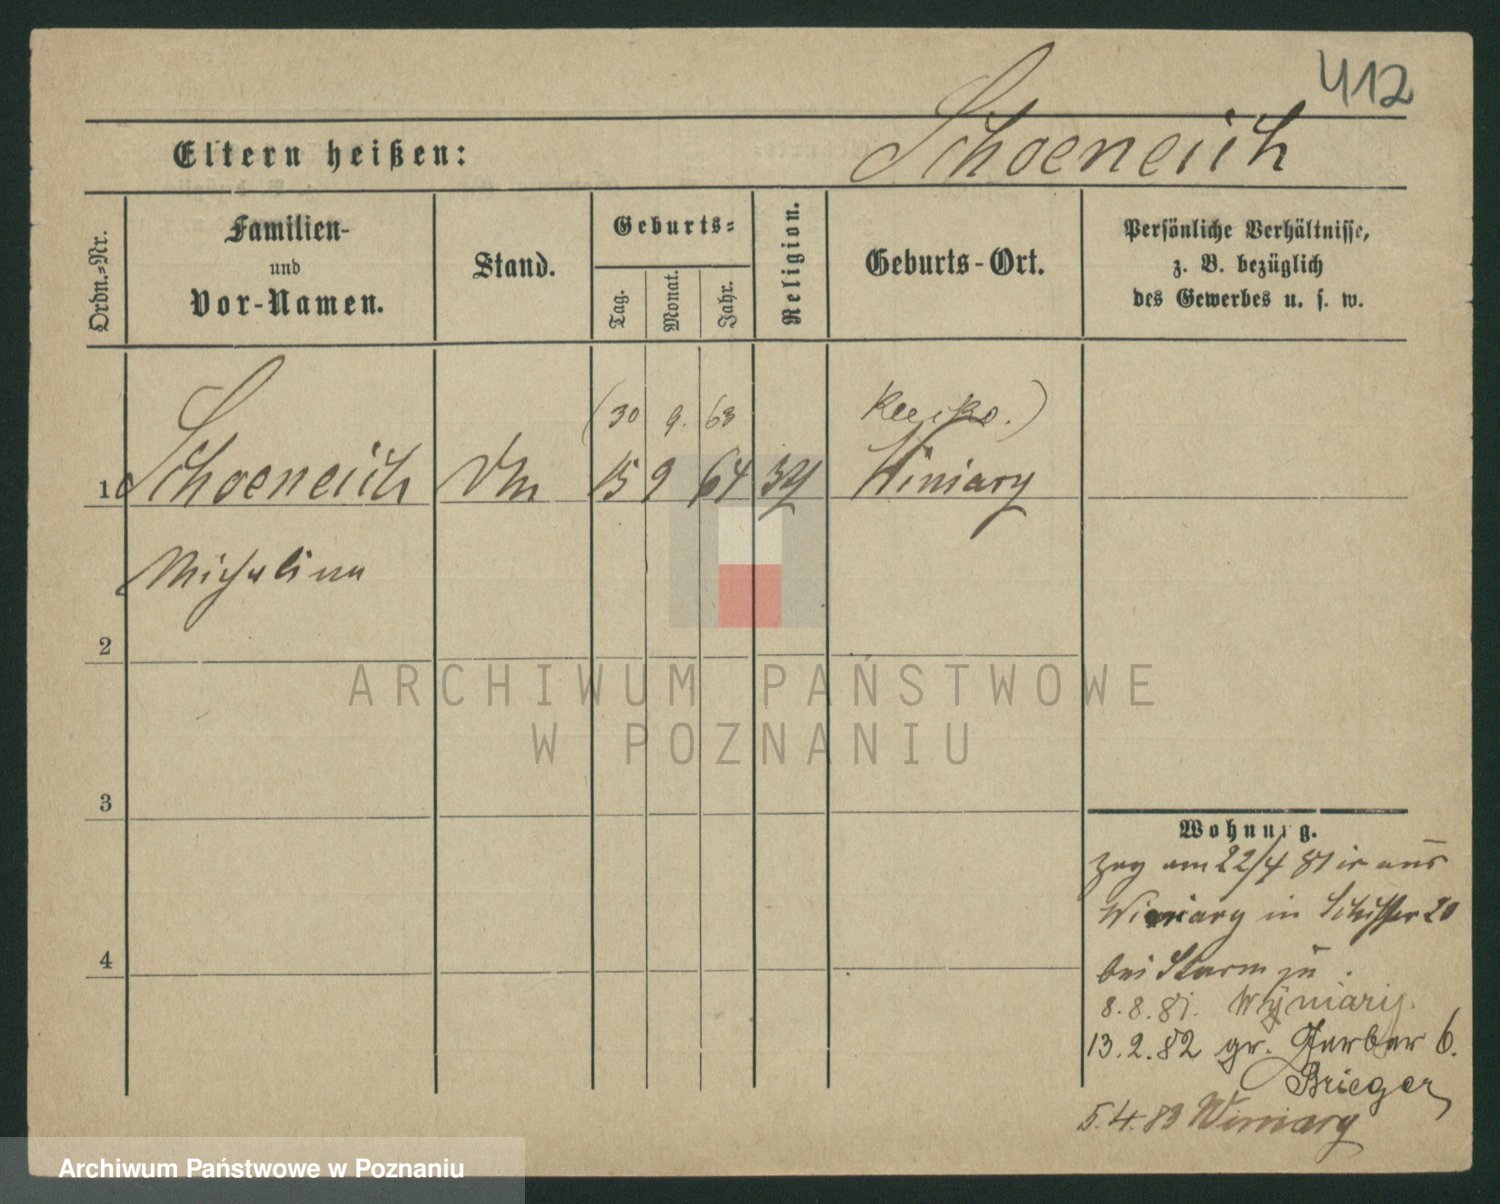 412
Schoeneich
Eltern heißen:
Ordn.=Nr.
Familien-
und
Vor-Namen.
Stand.
Geburts=
Tag.
Monat.
Jahr.
Religion.
Geburts-Ort.
Persönliche Verhältnisse,
z. B. bezüglich
des Gewerbes u. s. w.
(30 9. 63 )
1 Schoeneich 15 9 64 Winiary
Michalina
2
ARCHIWUM PAŃSTWOWE
W POZNANIU
3
Wohnung.
zog am 22/4 81 aus
Winiary in 20
4
bei Sturm zu.
8.8.81. Wyniary.
13.2.82 gr. Gerber 6.
Brieger
5.4.83 Winiary
Archiwum Państwowe w Poznaniu